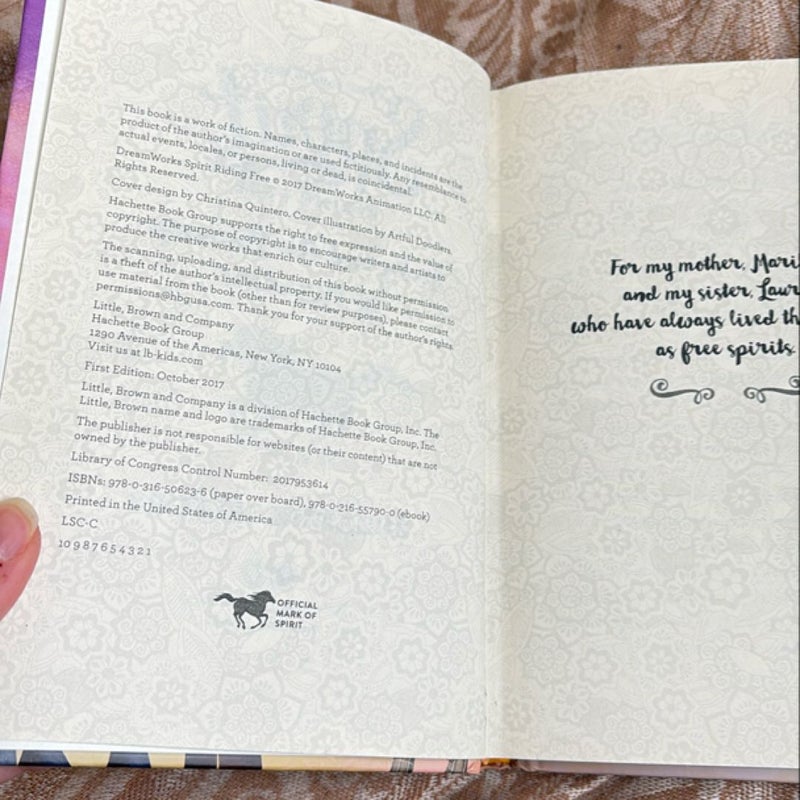 This book is a work of fiction. Names, characters, places, and incidents are the
product of the author's imagination or are used fictitiously. Any resemblance to
actual events, locales, or persons, living or dead, is coincidental.
DreamWorks Spirit Riding Free © 2017 DreamWorks Animation LLC. All
Rights Reserved.
Cover design by Christina Quintero. Cover illustration by Artful Doodlers.
Hachette Book Group supports the right to free expression and the value of
copyright. The purpose of copyright is to encourage writers and artists to
produce the creative works that enrich our culture.
The scanning, uploading, and distribution of this book without permission
is a theft of the author's intellectual property. If you would like permission to
use material from the book (other than for review purposes), please contact
permissions@hbgusa.com. Thank you for your support of the author's rights.
Little, Brown and Company
Hachette Book Group
1290 Avenue of the Americas, New York, NY 10104
Visit us at lb-kids.com
First Edition: October 2017
Little, Brown and Company is a division of Hachette Book Group, Inc. The
Little, Brown name and logo are trademarks of Hachette Book Group, Inc.
The publisher is not responsible for websites (or their content) that are not
owned by the publisher.
Library of Congress Control Number: 2017953614
ISBNs: 978-0-316-50623-6 (paper over board), 978-0-216-55790-0 (ebook)
Printed in the United States of America
LSC-C
10 9 8 7 6 5 4 3 2 1
OFFICIAL
MARK OF
SPIRIT
For my mother, Mari
and my sister, Laur
who have always lived th
as free spirits.